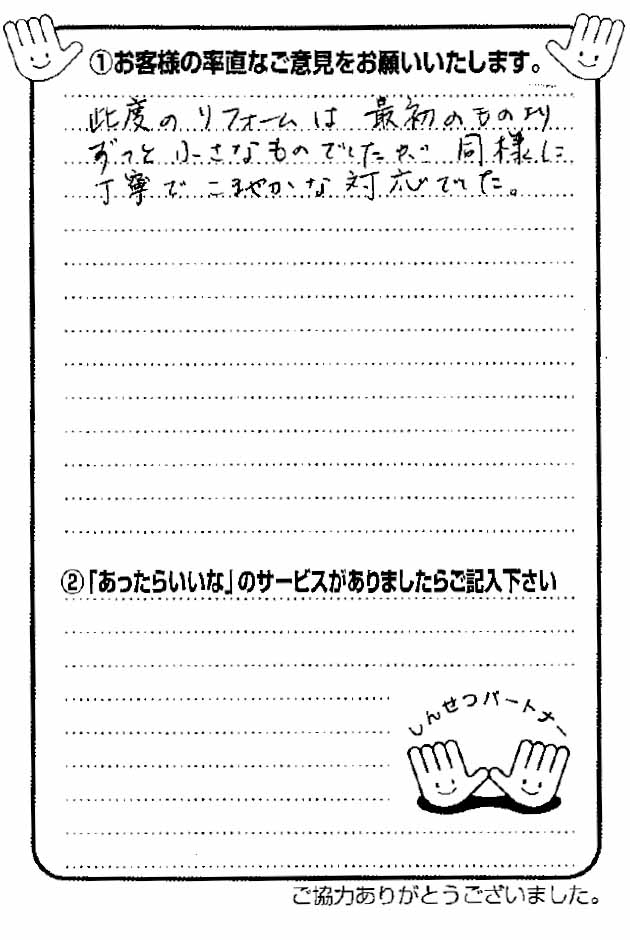 ①お客様の率直なご意見をお願いいたします。
此度のリフォームは最初のものより
ずっと小さなものでしたが同様に
丁寧でこまやかな対応でした。
②「あったらいいな」のサービスがありましたらご記入下さい
しんせつパートナー
ご協力ありがとうございました。